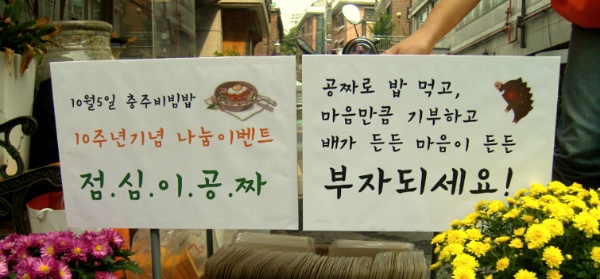 10월5일 충주비빔밥
10주년기념 나눔이벤트
점.심.이.공.짜
공짜로 밥 먹고,
마음만큼 기부하고
배가 든든 마음이 든든
부자되세요!